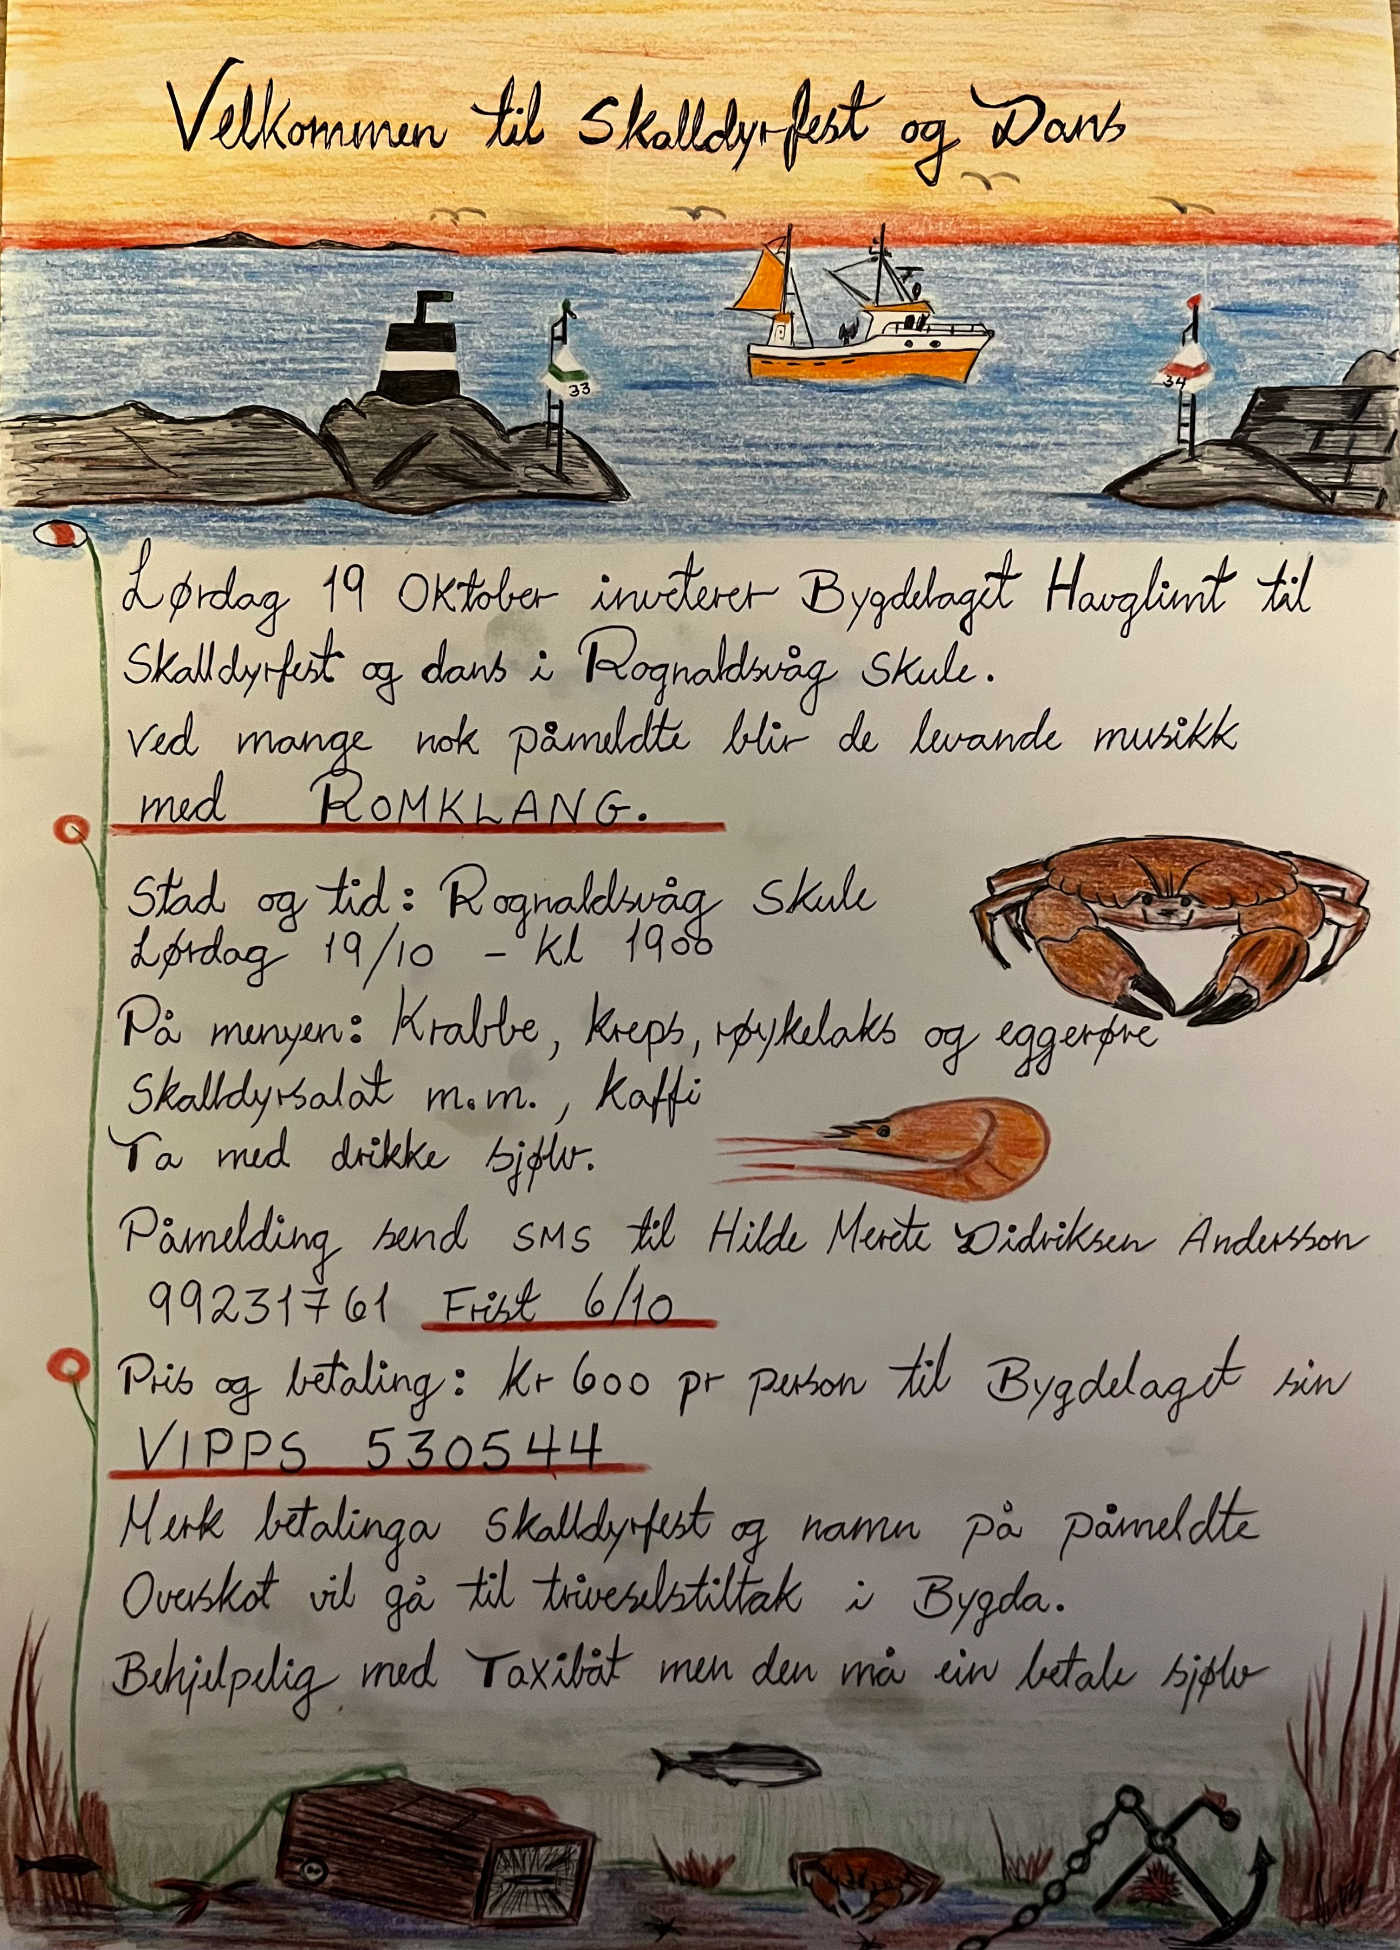 Velkommen til Skalldyrfest og Dans
33
34
Lørdag 19 Oktober inveterer Bygdelaget Havglimt til
Skalldyrfest og dans i Rognaldsvåg Skule.
Ved mange nok påmeldte blir de levande musikk
med ROMKLANG.
Stad og tid: Rognaldsvåg Skule
Lørdag 19/10 - kl 1900
På menyen: Krabbe, kreps, røykelaks og eggerøre
Skalldyrsalat m.m., kaffi
Ta med drikke sjølv.
Påmelding send SMS til Hilde Merete Didriksen Andersson
99231761 Frist 6/10
Pris og betaling: Kr 600 pr person til Bygdelaget sin
VIPPS 530544
Merk betalinga Skalldyrfest og namn på påmeldte
Overskot vil gå til triveselstiltak i Bygda.
Behjelpelig med Taxibåt men den må ein betale sjølv